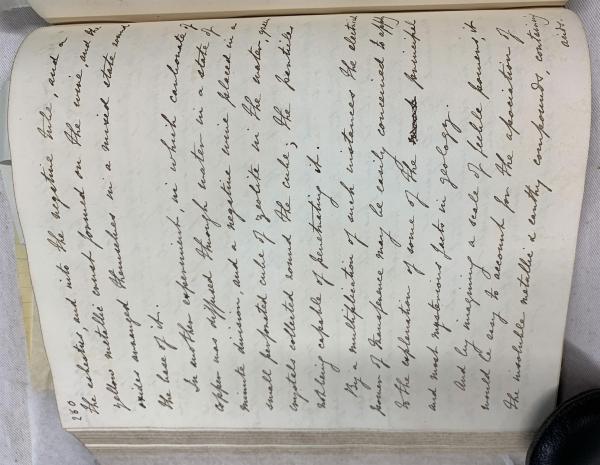 260
the asbestos, and into the negative tube, and a
yellow metallic crust formed on the wire, and the
oxides arranged themselves in a mixed state round
the base of it.
In another experiment, in which carbonate of
copper was diffused through water in a state of
minute division, and a negative wire placed in a
small perforated cube of zeolite in the water, green
crystals collected round the cube; the particles
not being capable of penetrating it.
By a multiplication of such instances the electrical
power of transference may be easily conceived to apply
to the explanation of some of the principal
and most mysterious facts in geology.
And by imagining a scale of feeble powers, it
would be easy to account for the association of
the insoluble metallic & earthy compounds, containing
acids.